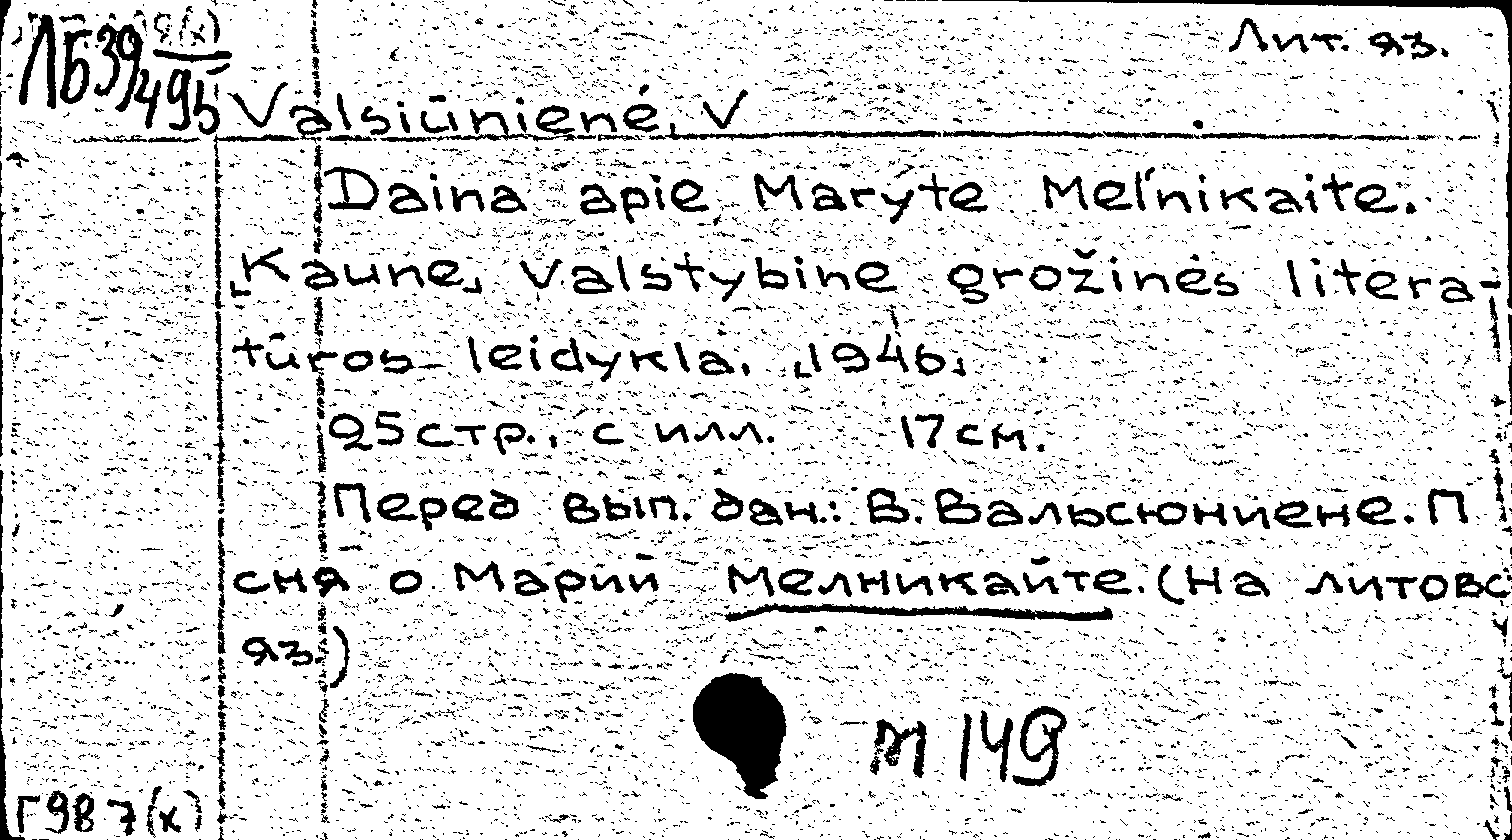 Лит. яз.
ЛБ39/495
Valsiūnienė, V
Daina apie Marýte Meľnikaite.
[Kaune], Valstybinė grožinės litera-
tūros leidykla, [1946]
25 стр., с илл. 17 см.
Перед вып. дан.: В. Вальсюниене. П
сня о Марий Мелникайте. (На литовс
яз.)
м 149
Г98 7(х)